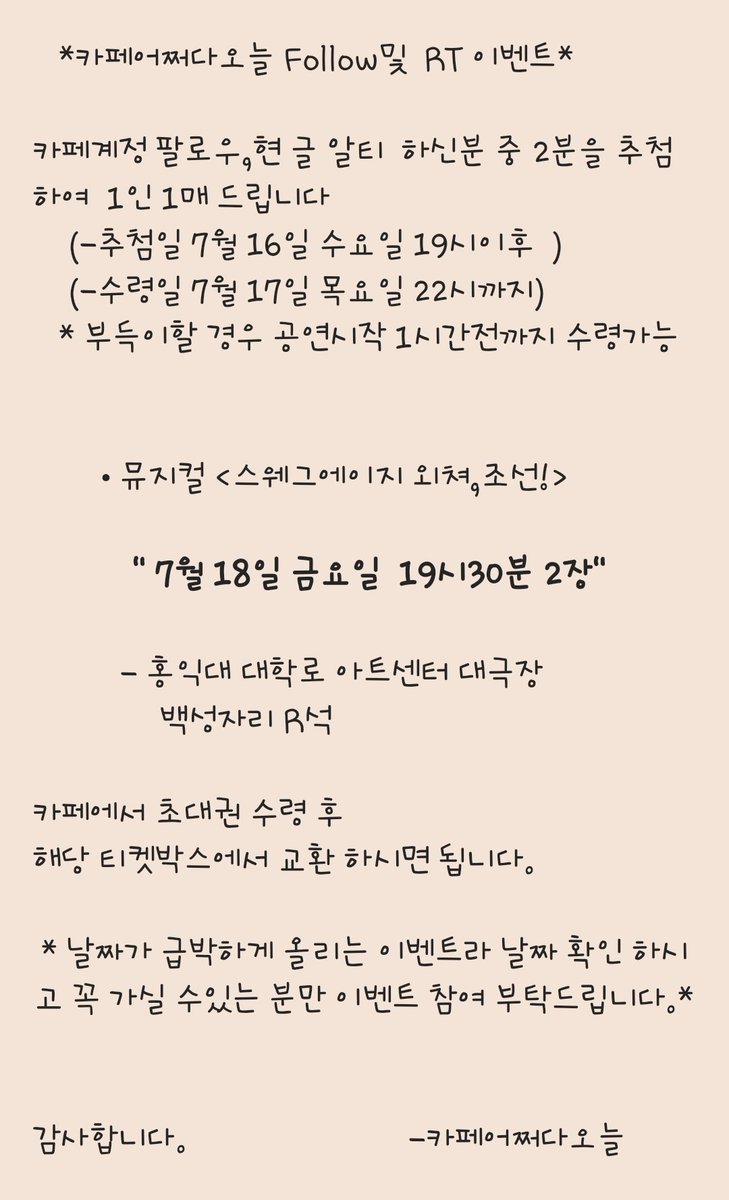 *카페어쩌다오늘 Follow및 RT 이벤트*
카페계정 팔로우,현 글 알티 하신분 중 2분을 추첨
하여 1인 1매 드립니다
(-추첨일 7월 16일 수요일 19시이후 )
(-수령일 7월 17일 목요일 22시까지)
* 부득이할 경우 공연시작 1시간전까지 수령가능
• 뮤지컬 <스웨그에이지 외쳐,조선!>
" 7월 18일 금요일 19시30분 2장"
- 홍익대 대학로 아트센터 대극장
백성자리 R석
카페에서 초대권 수령 후
해당 티켓박스에서 교환 하시면 됩니다.
* 날짜가 급박하게 올리는 이벤트라 날짜 확인 하시
고 꼭 가실 수있는 분만 이벤트 참여 부탁드립니다.*
감사합니다. -카페어쩌다오늘